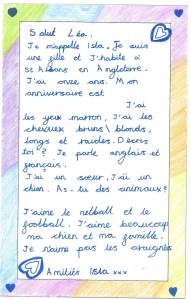 Salut Léa.
Je m'appelle Isla. Je suis
une fille et J'habite à
St Albans en Angleterre.
J'ai onze ans. Mon
anniversaire est
J'ai
les yeux marron, J'ai les
cheveux bruns\blonds,
longs et raides. Décris
toi? Je parle anglais et
français.
J'ai un sœur, J'ai un
chien. As-tu des animaux?
J'aime le netball et le
football. J'aime beaucoup
ma chien et ma famille.
Je n'aime pas les araignés
Amitiés Isla xxx